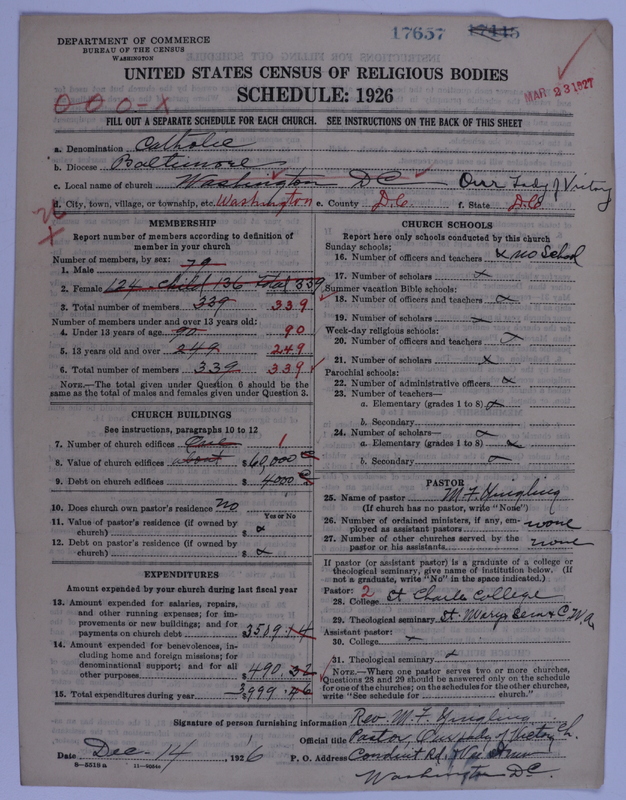 17657 17445
DEPARTMENT OF COMMERCE
BUREAU OF THE CENSUS
WASHINGTON
UNITED STATES CENSUS OF RELIGIOUS BODIES
SCHEDULE: 1926
MAR 23 1927
O O O-X
FILL OUT A SEPARATE SCHEDULE FOR EACH CHURCH. SEE INSTRUCTIONS ON THE BACK OF THIS SHEET
a. Denomination Catholic
b. Diocese Baltimore
c. Local name of church Washington DC Our Lady of Victory
d. City, town, village, or township, etc. Washington e. County D.C. f. State D.C.
MEMBERSHIP
Report number of members according to definition of
member in your church
Number of members, by sex:
1. Male 79
2. Female 124 - child 136 total 339
3. Total number of members 339 339
Number of members under and over 13 years old:
4. Under 13 years of age 90 90
5. 13 years old and over 249 249
6. Total number of members 339 339
NOTE.—The total given under Question 6 should be the
same as the total of males and females given under Question 3.
CHURCH BUILDINGS
See instructions, paragraphs 10 to 12
7. Number of church edifices One 1
8. Value of church edifices about $60,000
9. Debt on church edifices $4000
10. Does church own pastor's residence? No
Yes or No
11. Value of pastor's residence (if owned by
church) $ x
12. Debt on pastor's residence (if owned by
church) $ x
EXPENDITURES
Amount expended by your church during last fiscal year
13. Amount expended for salaries, repairs,
and other running expenses; for im-
provements or new buildings; and for
payments on church debt 3509.14
14. Amount expended for benevolences, in-
cluding home and foreign missions; for
denominational support; and for all
other purposes $490.32
15. Total expenditures during year 3,999.46
CHURCH SCHOOLS
Report here only schools conducted by this church
Sunday schools:
16. Number of officers and teachers x no School
17. Number of scholars x
Summer vacation Bible schools:
18. Number of officers and teachers x
19. Number of scholars x
Week-day religious schools:
20. Number of officers and teachers x
21. Number of scholars x
Parochial schools:
22. Number of administrative officers x
23. Number of teachers—
a. Elementary (grades 1 to 8) x
b. Secondary
24. Number of scholars— x
a. Elementary (grades 1 to 8) x
b. Secondary x
PASTOR
25. Name of pastor M. F. Yingling
(If church has no pastor, write "None")
26. Number of ordained ministers, if any, em-
ployed as assistant pastors none
27. Number of other churches served by the
pastor or his assistants none
If pastor (or assistant pastor) is a graduate of a college or
theological seminary, give name of institution below. (If
not a graduate, write "No" in the space indicated.)
Pastor: 2
28. College St Charles College
29. Theological seminary St. Marys Sem & C.U.A.
Assistant pastor:
30. College x
31. Theological seminary x
NOTE.—Where one pastor serves two or more churches,
Questions 28 and 29 should be answered only on the schedule
for one of the churches; on the schedules for the other churches,
write "See schedule for church."
Signature of person furnishing information Rev. M. F. Yingling
Official title Pastor, Our Lady of Victory Ch.
Date Dec. 14, 1926 P. O. Address Conduit Rd.
Washington D.C.